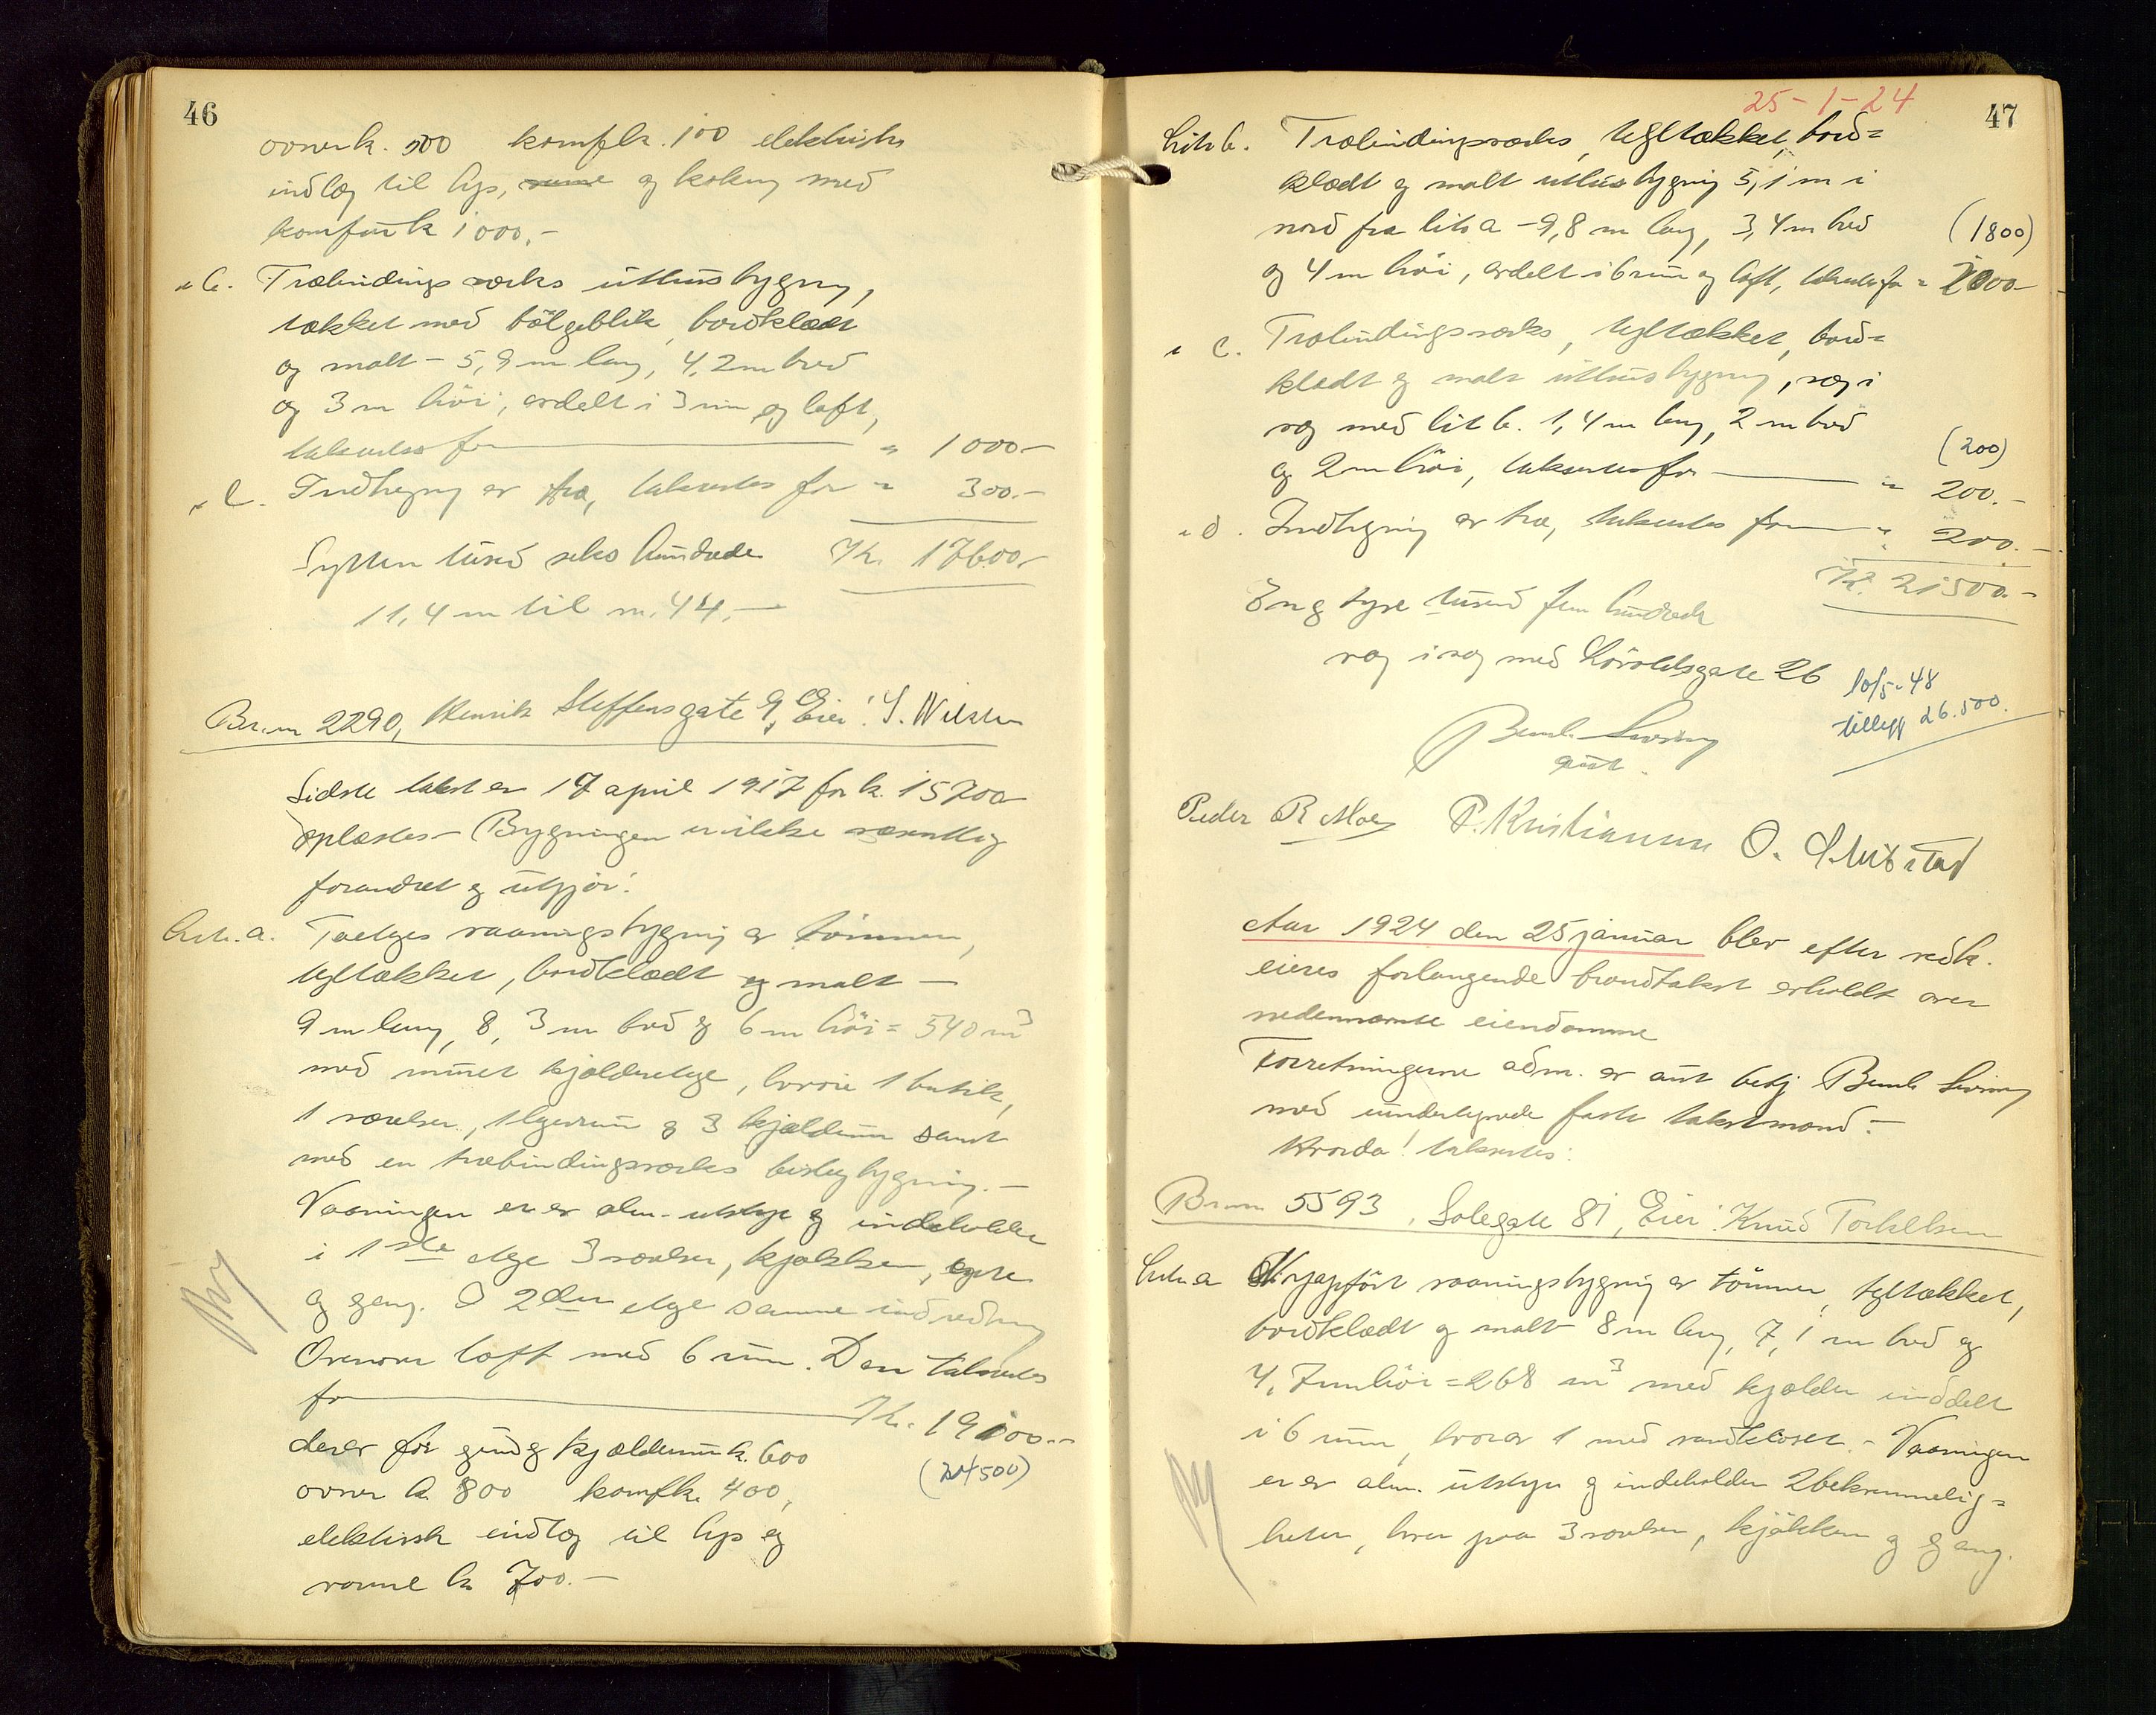 46
ovner k. 500 komf k. 100 elektrisk
indlæg til lys, varme og koking med
komfur k 1000.-
" b. Træbindingsværks uthusbygning,
tækket med bölgeblik, bordklædt
og malt - 5,9 m lang, 4,2 m bred
og 3 m höi, avdelt i 3 rum og loft,
takseres for " 1000.-
" c. Indhegning av træ, takseres for " 300.-
Sytten tused seks hundrede Kr. 17600.-
11,4 m til nr. 44.-
Br.nr 2290, Henrik Steffensgate 9, Eier: S. Nilsen
Sidste takst er 17 april 1917 for k. 15700
oplæstes - Bygningen er ikke væsentlig
forandret og utgjör:
Litr. a. Toetages vaaningsbygning av tömmer,
tegltækket, bordklædt og malt -
9 m lang, 8,3 m bred og 6 m höi = 540 m³
med muret kjælderetage, hvori 1 butik,
1 værelse, 1 lagerrum og 3 kjælderrum samt
med en træbindingsværks bislagbygning. -
Vaaningen er av alm. utstyr og indeholder
i 1ste etage 3 værelser, kjøkken, entre
og gang. I 2den etage samme indredning
Ovenover loft med 6 rum. Den takseres
for Kr. 19100.-
derav for grund og kjælderrum k. 600
(24500)
ovner k. 800 komf k. 400,
elektrisk indlæg til lys og
varme k. 700.-
Ny
25-1-24
47
Litr b. Træbindingsværks, tegltækket, bord=
klædt og malt uthusbygning 5,1 m i
nord fra litr a - 9,8 m lang, 3,4 m bred
(1800)
og 4 m höi, avdelt i 6 rum og loft, takseres for " 2000.-
" c. Træbindingsværks, tegltækket, bord=
klædt og malt uthusbygning, væg i
væg med lit b. 1,4 m lang, 2 m bred
(200)
og 2 m höi, takseres for " 200.-
" d. Indhegning av træ, takseres for " 200.-
Kr. 21500.-
En og tyve tusend fem hundrede
væg i væg med Lövoldsgate 26
10/5-48
tillegg 26.500.
Bernh.
aut.
Peder R Moe P. Kristiansen O.
Aar 1924 den 25 januar blev efter vedk.
eieres forlangende brandtakst avholdt over
nedennævnte eiendomme
Forretningerne adm. av aut betj Bernh
med undertegnede faste takstmænd. -
Hvorda! takseres:
Br.nr 5593, Solegate 81, Eier: Knud Torkelsen
Litr. a Nyopfört vaaningsbygning av tömmer, tegltækket,
bordklædt og malt 8 m lang, 7,1 m bred og
4,7 m höi = 268 m³ med kjælder inddelt
i 6 rum, hvorav 1 med vandkloset. - Vaaningen
er av alm. utstyr og indeholder 2 bekvemmelig=
heter, hver paa 3 værelser, kjökken og gang.
Ny